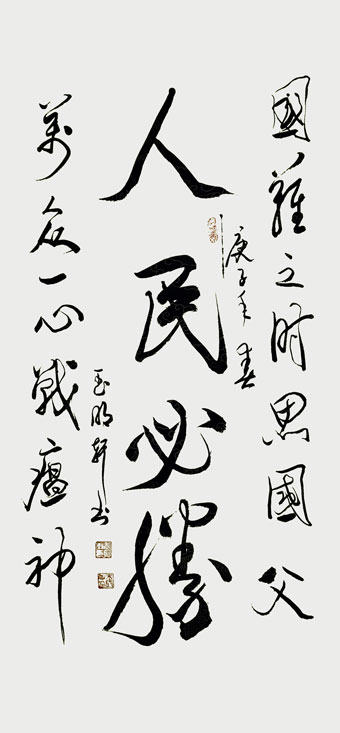 國難之時思國父
庚子年春
人民必勝
玉明軒书
萬众一心戰瘟神